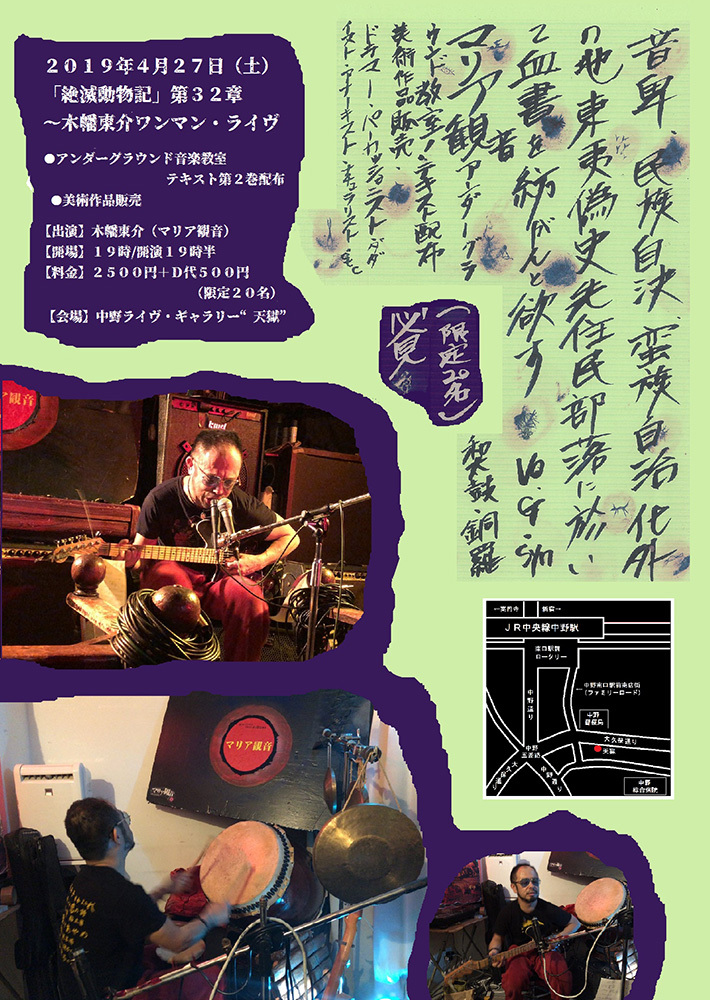 2019年4月27日（土）
「絶滅動物記」第32章
～木幡東介ワンマン・ライヴ
●アンダーグラウンド音楽教室
テキスト第2巻配布
●美術作品販売
【出演】木幡東介（マリア観音）
【開場】19時/開演19時半
【料金】2500円＋D代500円
（限定20名）
【会場】中野ライヴ・ギャラリー“ 天獄”
音卑、民族自決、蛮族自治、化外
の地 東夷偽史先住民部落に於い
て血書を紡がんと欲す Vo G. Syn
マリア観
アンダーグラ
ウンド教室テキスト配布
美術作品販売
ドラマー・パーカッショニスト
（限定20名）
必見
銅羅
マリア観音
←高円寺
新宿→
JR中央線中野駅
南口駅前
ロータリー
中野通り
←中野南口駅前商店街
（ファミリーロード）
中野
郵便局
大久保通り
天獄
中野
五差路
中野通り
中野
総合病院
マリア観音